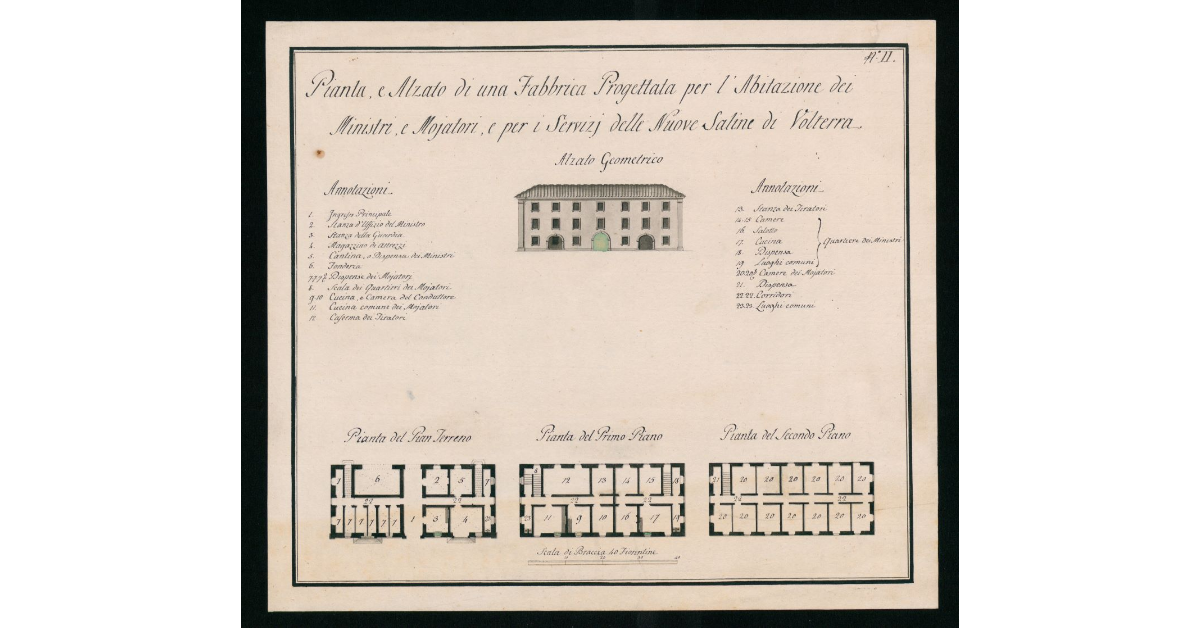 N.° II.
Pianta, e Alzato di una Fabbrica Progettata per l'Abitazione dei
Ministri, e Mojatori, e per i Servizj delle Nuove Saline di Volterra.
Alzato Geometrico
Annotazioni
1. Ingresso Principale
2. Stanza d'Uffizio del Ministro
3. Stanza della Guardia
4. Magazzino di attrezzi
5. Cantina, o Dispensa dei Ministri
6. Fonderia
7.7.7.& Dispense dei Mojatori
8. Scala dei Quartieri dei Mojatori
9.10 Cucina, e Camera del Conduttore
11. Cucina comune dei Mojatori
12. Caserma dei Tiratori
Annotazioni
13. Stanza dei Tiratori
14.15 Camere
16. Salotto
17. Cucina
18. Dispensa
19. Luoghi comuni
Quartiere dei Ministri
20.20.& Camere dei Mojatori
21. Dispensa
22.22. Corridori
23.23. Luoghi comuni
Pianta del Pian Terreno
Pianta del Primo Piano
Pianta del Secondo Piano
7 6 2 5 7
22 22
7 7 7 7 7 7 1 3 4
8 12 13 14 15 18
22 22
23 11 9 10 16 17 19
21 20 20 20 20 20 20
22 22
20 20 20 20 20 20 20
Scala di Braccia 40 Fiorentine